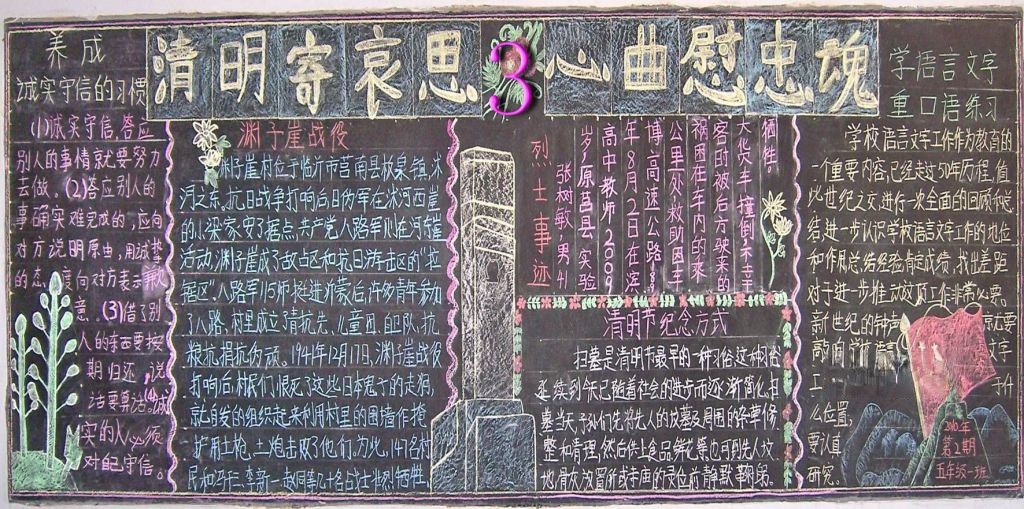 清明寄哀思 3 心曲慰忠魂
养成
诚实守信的习惯
(1)诚实守信,答应
别人的事情就要努力
去做。(2)答应别人的
事确实难完成的,应向
对方说明原由,用诚挚
的态度向对方表示歉
意。(3)借了别
人的东西要按
期归还,说
话要算话。(4)诚
实的人必须
对自己守信。
渊子崖战役
渊子崖村位于临沂市莒南县板泉镇,沭
河之东,抗日战争打响后日伪军在沭河西崖
的小梁家安了据点,共产党八路军则在河东崖
活动,渊子崖成了敌占区和抗日游击区的"拉
锯区"。八路军115师挺进沂蒙后,许多青年参加
了八路,村里成立清抗先、儿童团、自卫队,抗
粮抗捐抗伪顽。1941年12月17日,渊子崖战役
打响后,村民们恨死了这些日本鬼子的走狗,
就自发的组织起来利用村里的围墙作掩
护用土枪、土炮击败了他们,为此,147名村
民和冯三、李新一、赵同等几十名战士壮烈牺牲。
烈士事迹
张树敏,男,41
岁,原莒县实验
高中教师,2009
年8月2日在滨
博高速公路8
公里处救助因车
祸困在车内的乘
客时被后方驶来的
大货车撞倒,不幸
牺牲。
清明节纪念方式
扫墓是清明节最早的一种习俗,这种习俗
延续到今天已随着社会的进步而逐渐简化,扫
墓当天,子孙们先将先人的坟墓及周围的杂草修
整和清理,然后供上食品鲜花等,也可到先人坟
地、骨灰放置所或寺庙的灵位前静默鞠躬。
学语言文字
重口语练习
学校语言文字工作作为教育的
一个重要内容,已经走过50年历程,值
此世纪之交,进行一次全面的回顾和总
结,进一步认识学校语言文字工作的地位
和作用,总结经验,肯定成绩,找出差距
对于进一步推动这项工作非常必要。
新世纪的钟声
敲向
工
么位置,
要认真
研究。
2010年
第2期
五年级一班